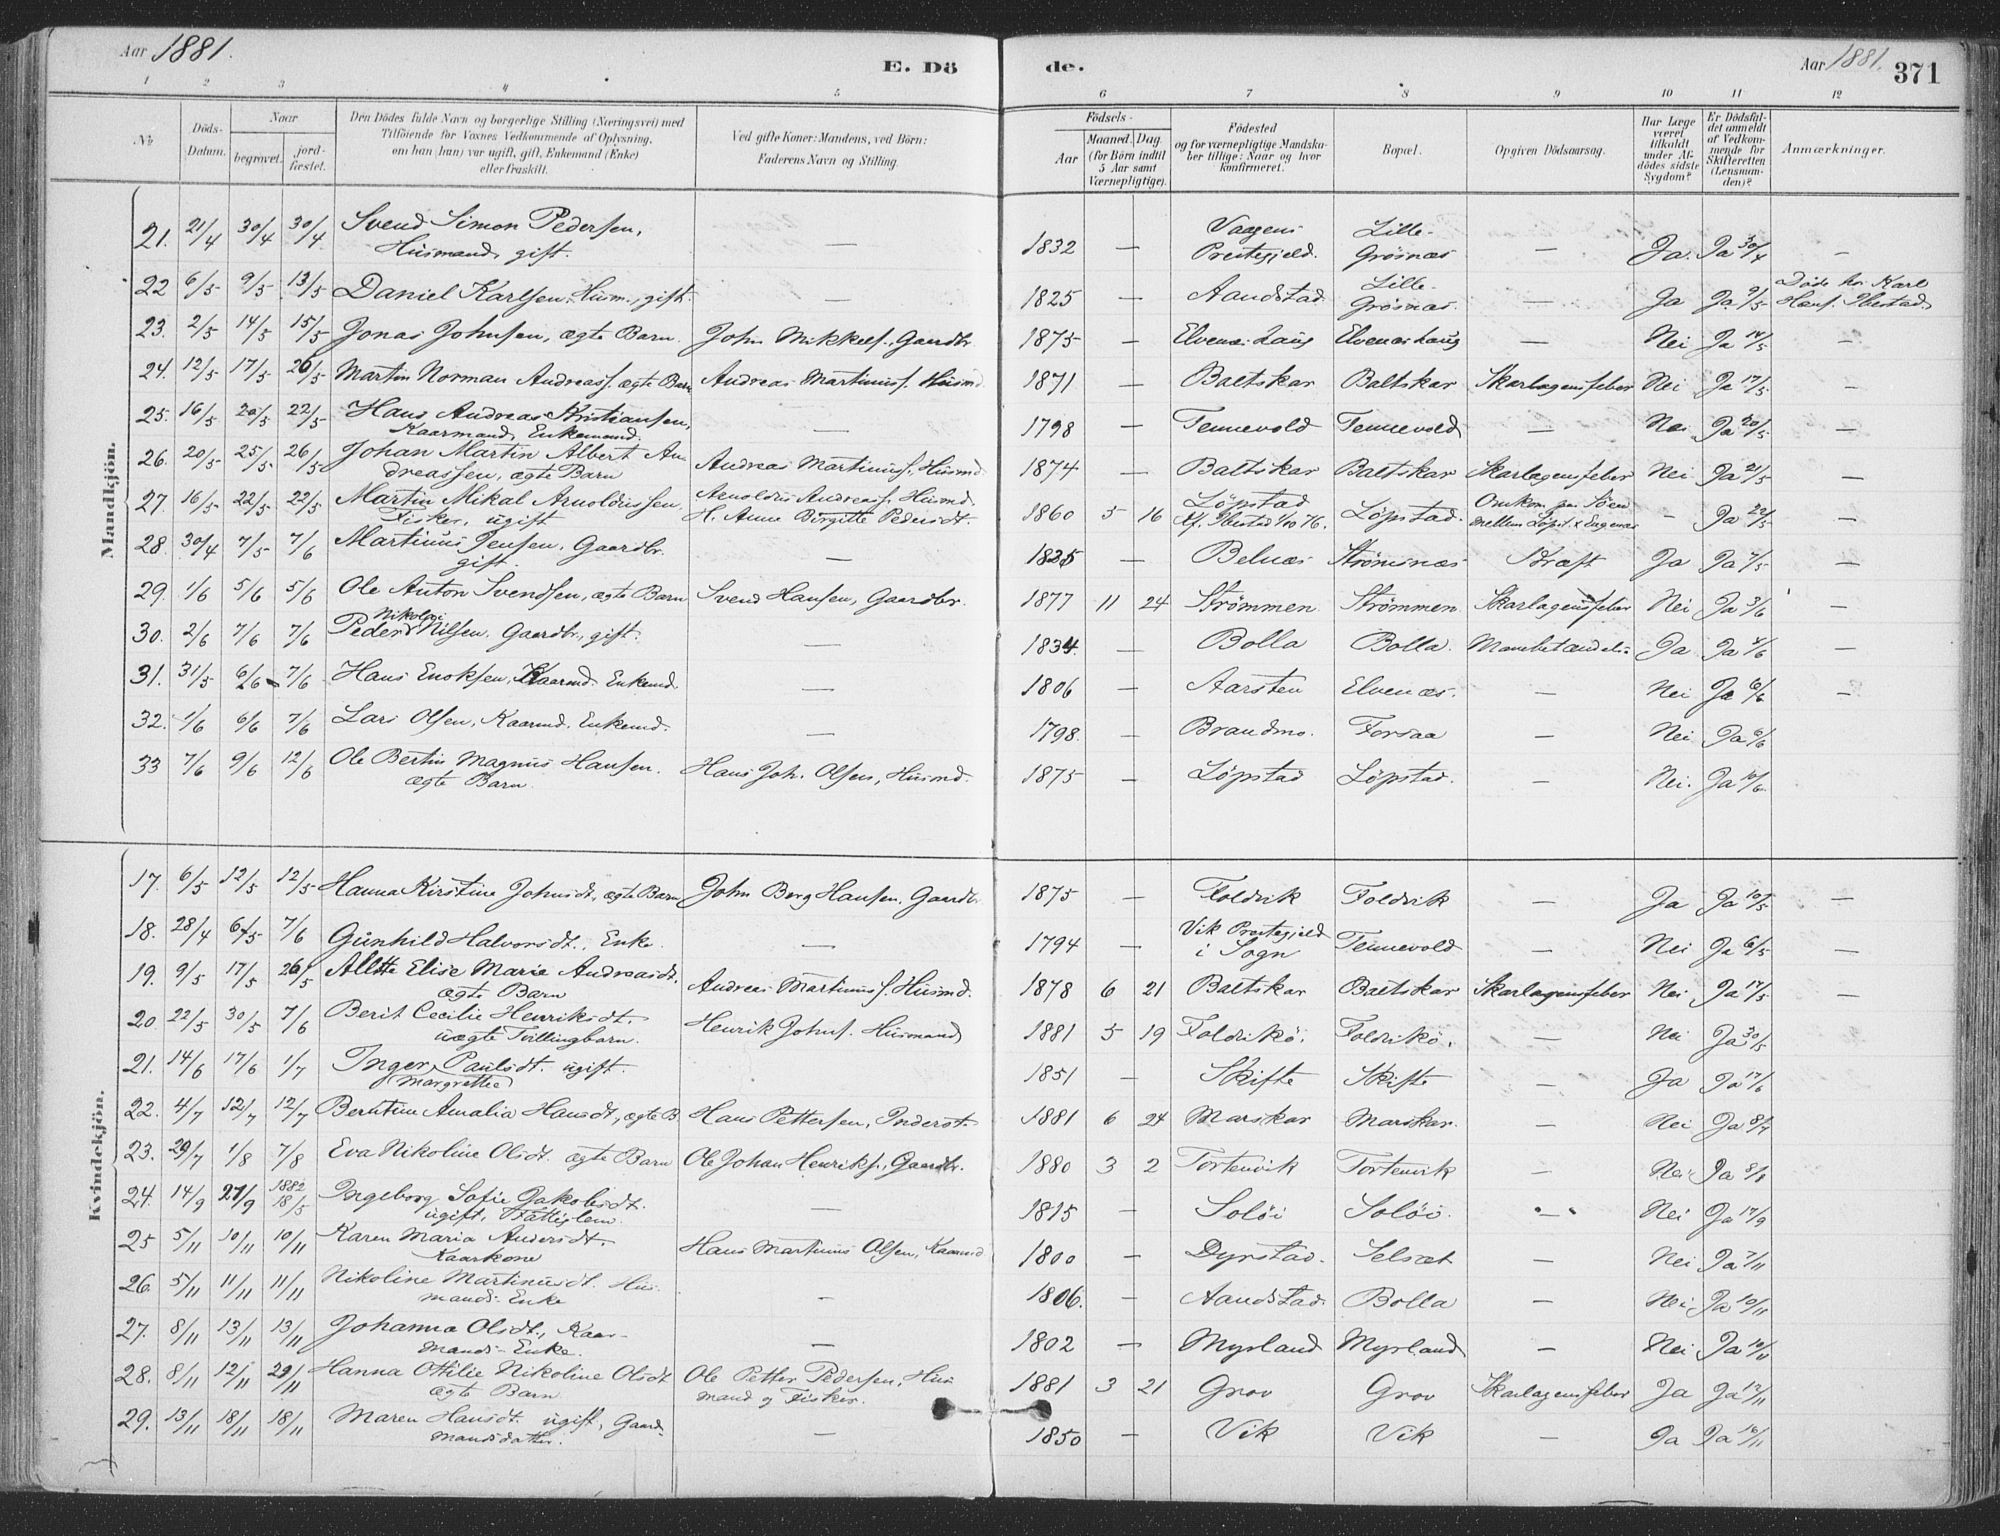 Aar 1881. E. Dö de. Aar 1881. 371
1 2 3 4 5 6 7 8 9 10 11 12
No Döds-Datum. Naar begravet. jordfæstet. Den Dödes fulde Navn og borgerlige Stilling (Næringsvei) med Tilföiende for Voxnes Vedkommende af Oplysning, om han (hun) var ugift, gift, Enkemand (Enke) eller fraskilt. Ved gifte Koner: Mandens, ved Börn: Faderens Navn og Stilling. Födsels- Aar Maaned. Dag. (for Börn indtil 5 Aar samt Værnepligtige). Födested og for værnepligtige Mandskaber tillige: Naar og hvor konfirmeret. Bopæl. Opgiven Dödsaarsag. Har Læge været tilkaldt under Afdödes sidste Sygdom? Er Dödsfaldet anmeldt af Vedkommende for Skifteretten (Lensmanden)? Anmærkninger.
Mandkjön.
21. 21/4 30/4 30/4 Svend Simon Pedersen, Husmand, gift. — 1832 — Vaagens Prestegjeld. Lille-Grøsnæs — Ja. Ja 30/4 —
22 6/5 9/5 13/5 Daniel Karlsen, Husm., gift. — 1825 — Aandstad Lille-Grøsnæs. — Ja Ja 9/5 Døde hos Karl Hans. Ibestad
23. 2/5 14/5 15/5 Jonas Johnsen, ægte Barn. John Mikkels., Gaardbr. 1875 — Elvenes Laug Elvenes Laug — Nei Ja 14/5 —
24. 12/5 17/5 26/5 Martin Norman Andreass. ægte Barn Andreas Martinuss. Husmd. 1871 — Baltskar Baltskar Skarlagensfeber Nei Ja 17/5 —
25. 16/5 20/5 22/5 Hans Andreas Kristiansen, Kaarmand, Enkemand. — 1798 — Tennevold Tennevold — Nei Ja 20/5 —
26. 20/5 25/5 26/5 Johan Martin Albert Andreassen, ægte Barn Andreas Martinuss. Husmd. 1874 — Baltskar Baltskar Skarlagensfeber Nei Ja 21/5 —
27. 16/5 22/5 22/5 Martin Mikal Arnoldussen, Fisker, ugift Arnoldus Andreass. Husmd H. Anne Birgitte Pedersdt. 1860 5 16 Løpstad Kf. Ibestad 1/10 76. Løpstad. Omkom paa Søen mellem Løpst. & Engenæs — Ja 22/5 —
28. 30/4 7/5 7/6 Martinus Jensen, Gaardbr. gift. — 1825 — Belnæs Strømnæs Kræft Ja Ja 7/5 —
29. 1/6 5/6 5/6 Ole Anton Svendsen, ægte Barn Svend Hansen, Gaardbr. 1877 11 24 Strømmen Strømmen Skarlagensfeber Nei Ja 3/6 —
30. 2/6 7/6 7/6 Peder Nikolai Nilsen, Gaardbr., gift. — 1834. — Bolla Bolla. Mavebetændel. Ja Ja 4/6 —
31. 31/5 6/6 7/6 Hans Enoksen, Kaarmd. Enkemd. — 1806 — Aarsten Elvenæs. — Nei Ja 6/6 —
32. 1/6 6/6 7/6 Lars Olsen, Kaarmd. Enkemd. — 1798. — Brandmo. Forsaa — Nei Ja 6/6
33 7/6 9/6 12/6 Ole Bertin Magnus Hansen. ægte Barn. Hans Joh. Olsen, Husmd. 1875 — Løpstad Løpstad. — Nei. Ja 10/6.
Kvindekjön.
17. 6/5 12/5 12/5 Hanna Kirstine Johnsdt., ægte Barn John Berg Hansen, Gaardbr. 1875 — Foldvik Foldvik — Ja Ja 10/5 —
18. 28/4 6/5 7/6 Gunhild Halvorsdt., Enke. — 1794 — Vik Prestegjeld i Sogn Tennevold — Nei Ja 6/5 —
19. 9/5 17/5 26/5 Alette Elise Marie Andreasdt. ægte Barn Andreas Martinuss. Husmd. 1878 6 21 Baltskar Baltskar Skarlagensfeber Nei Ja 17/5 —
20 22/5 30/5 7/6 Berit Cecilie Henriksdt. uægte Tvillingbarn. Henrik Johns. Husmand 1881 5 19 Foldvikø. Foldvikø. — Nei Ja 30/5
21. 14/6 17/6 1/7 Inger Margrethe Paulsdt. ugift. 1851 — Skifte Skifte — Ja Ja 17/6
22. 4/7 12/7 12/7 Berntine Amalia Hansdt., ægte B. Hans Pettersen, Inderst. 1881 6 24 Marskar Marskar. — Nei Ja 8/7
23. 29/7 1/8 7/8 Eva Nikoline Olsdt. ægte Barn Ole Johan Henriks., Gaardbr. 1880 3 2 Tortenvik Tortenvik — Nei Ja 8/8
24. 14/9 27/9 1882 18/5 Ingeborg Sofie Jakobsdt. ugift, Fattiglem. — 1815 — Soløi Soløi. — Nei Ja 17/9
25 5/11 10/11 10/11 Karen Maria Andersdt. Kaarkone Hans Martinus Olsen, Kaarmd 1800 — Dyrstad. Selsæt — Nei Ja 7/11
26. 5/11 11/11 11/11 Nikoline Martinusdt. Husmands-Enke — 1806. — Aandstad. Bolla — Nei Ja 10/11
27. 8/11 13/11 13/11 Johanna Olsdt., Kaarmands-Enke. — 1802 — Myrland Myrland — Nei Ja 10/11
28. 8/11 12/11 29/11 Hanna Ottilie Nikoline Olsdt ægte Barn Ole Petter Pedersen, Husmand og Fisker. 1881 3 21 Grov Grov Skarlagensfeber Ja Ja 12/11
29. 13/11 18/11 18/11 Maren Hansdt. ugift, Gaardmandsdatter. — 1850 — Vik Vik — Ja Ja 16/11